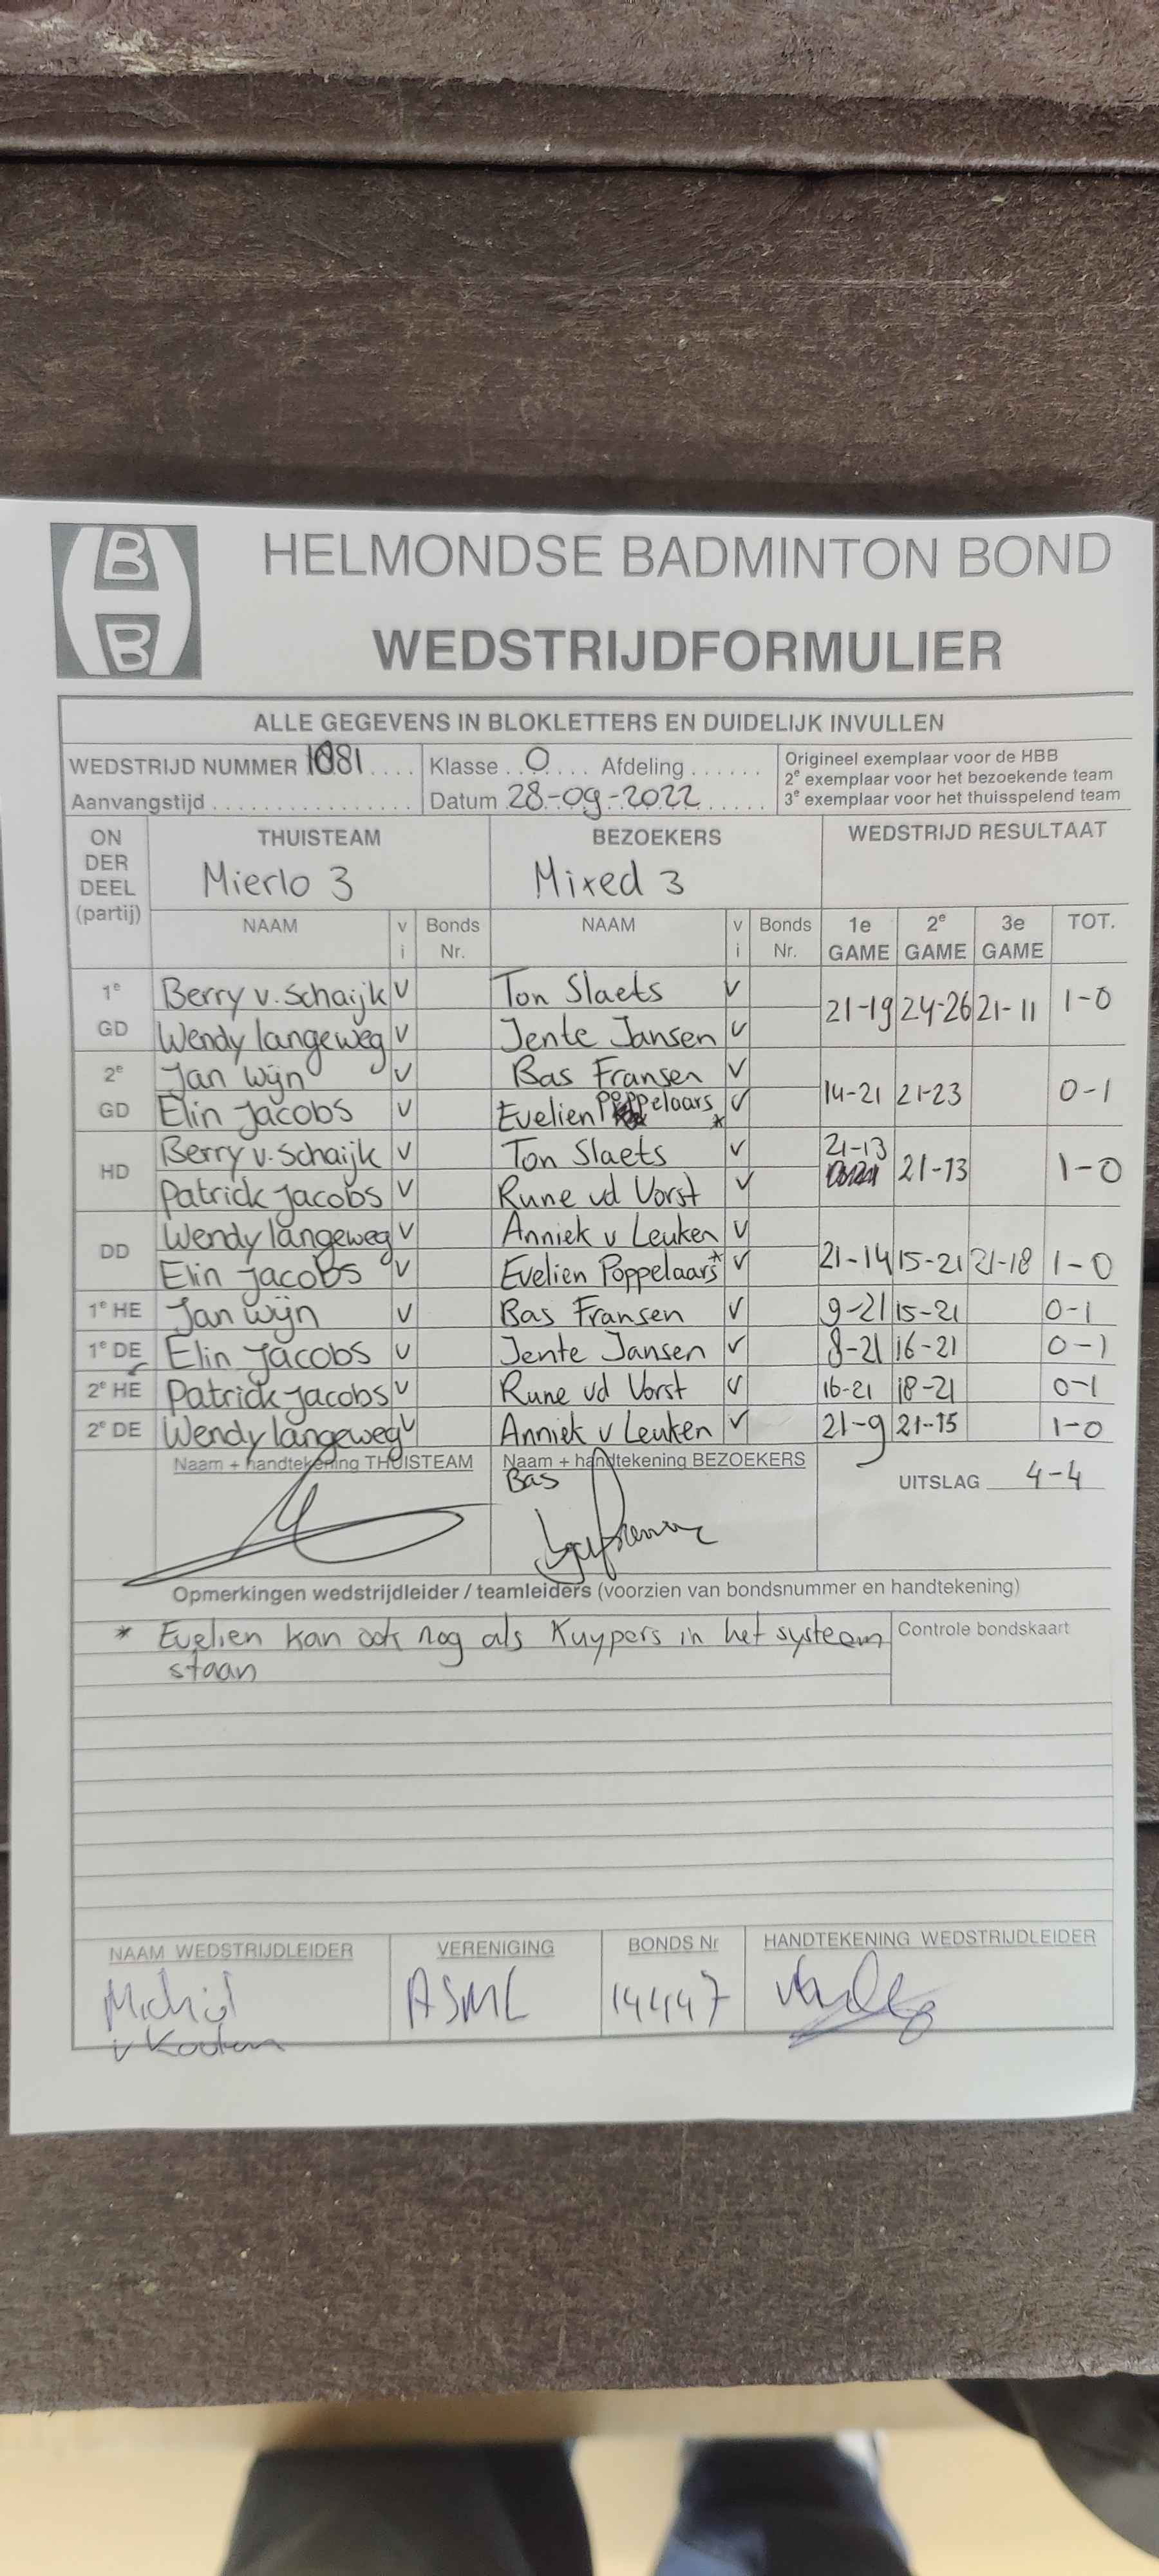 B
B
HELMONDSE BADMINTON BOND
WEDSTRIJDFORMULIER
ALLE GEGEVENS IN BLOKLETTERS EN DUIDELIJK INVULLEN
WEDSTRIJD NUMMER 1081.... Klasse..O.... Afdeling......
Aanvangstijd................ Datum 28-09-2022......
Origineel exemplaar voor de HBB
2e exemplaar voor het bezoekende team
3e exemplaar voor het thuisspelend team
ON DER DEEL (partij) THUISTEAM BEZOEKERS WEDSTRIJD RESULTAAT
Mierlo 3 Mixed 3
NAAM v i Bonds Nr. NAAM v i Bonds Nr. 1e GAME 2e GAME 3e GAME TOT.
1e GD Berry v. Schaijk v Ton Slaets v 21-19 24-26 21-11 1-0
Wendy langeweg v Jente Jansen v
2e GD Jan Wijn v Bas Fransen v 14-21 21-23 0-1
Elin Jacobs v Evelien Poppelaars * v
HD Berry v. Schaijk v Ton Slaets v 21-13 21-13 1-0
Patrick Jacobs v Rune vd Vorst v
DD Wendy langeweg v Anniek v Leuken v 21-14 15-21 21-18 1-0
Elin Jacobs v Evelien Poppelaars * v
1e HE Jan Wijn v Bas Fransen v 9-21 15-21 0-1
1e DE Elin Jacobs v Jente Jansen v 8-21 16-21 0-1
2e HE Patrick Jacobs v Rune vd Vorst v 16-21 18-21 0-1
2e DE Wendy langeweg v Anniek v Leuken v 21-9 21-15 1-0
Naam + handtekening THUISTEAM Naam + handtekening BEZOEKERS
Bas
UITSLAG 4-4
Opmerkingen wedstrijdleider / teamleiders (voorzien van bondsnummer en handtekening)
* Evelien kan ook nog als Kuypers in het systeem
staan
Controle bondskaart
NAAM WEDSTRIJDLEIDER VERENIGING BONDS Nr HANDTEKENING WEDSTRIJDLEIDER
Michiel ASML 14447
v Kooten